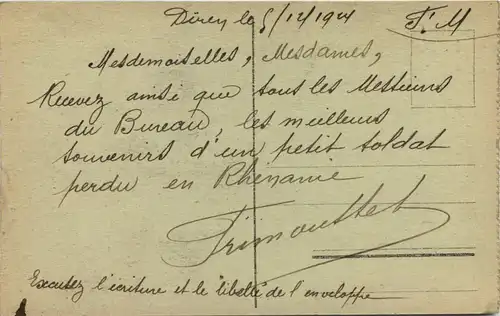 Diren le 5/12/1924 F.M
Mesdemoiselles, Mesdames,
Recevez ainsi que tous les Messieurs
du Bureau, les meilleurs
souvenirs d'un petit soldat
perdu en Rhénanie
Trimouillet
Excusez l'écriture et le libellé de l'enveloppe